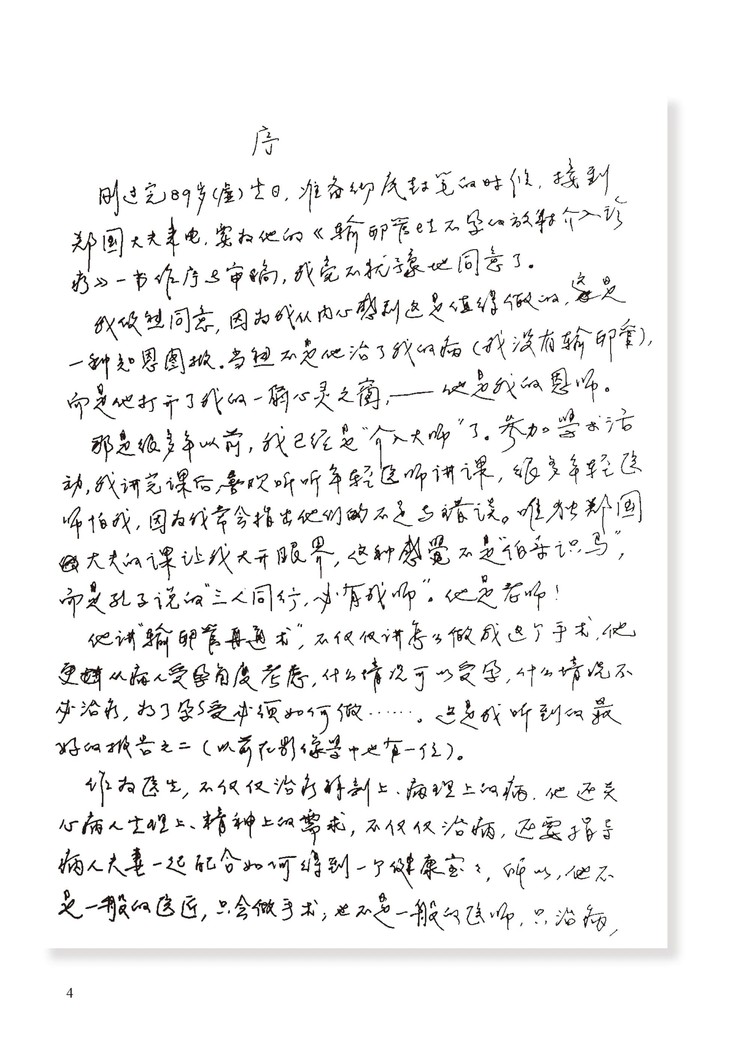 序
刚过完89岁(虚)生日，准备彻底封笔的时候，接到
郑国大夫来电，要为他的《输卵管性不孕的放射介入诊
疗》一书作序与审稿，我竟不犹豫地同意了。
我欣然同意，因为我从内心感到这是值得做的，这是
一种知恩图报。当然不是他治了我的病(我没有输卵管)，
而是他打开了我的一扇心灵之窗，——他是我的恩师。
那是很多年以前，我已经是"介入大师"了。参加学术活
动，我讲完课后，喜欢听听年轻医师讲课，很多年轻医
师怕我，因为我常会指出他们的不足与错误。唯独郑国
大夫的课让我大开眼界，这种感觉不是"伯乐识马"，
而是孔子说的"三人同行，必有我师"。他是老师！
他讲"输卵管再通术"，不仅仅讲怎么做成这个手术，他
更从病人受孕角度考虑，什么情况可以受孕，什么情况不
必治疗，为了孕受必须如何做……。这是我听到的最
好的报告之二(以前在影像学中也有一位)。
作为医生，不仅仅治疗解剖上、病理上的病，他还关
心病人生理上、精神上的需求，不仅仅治病，还要指导
病人夫妻一起配合如何得到一个健康宝宝，所以，他不
是一般的医匠，只会做手术；也不是一般的医师，只治病，
4